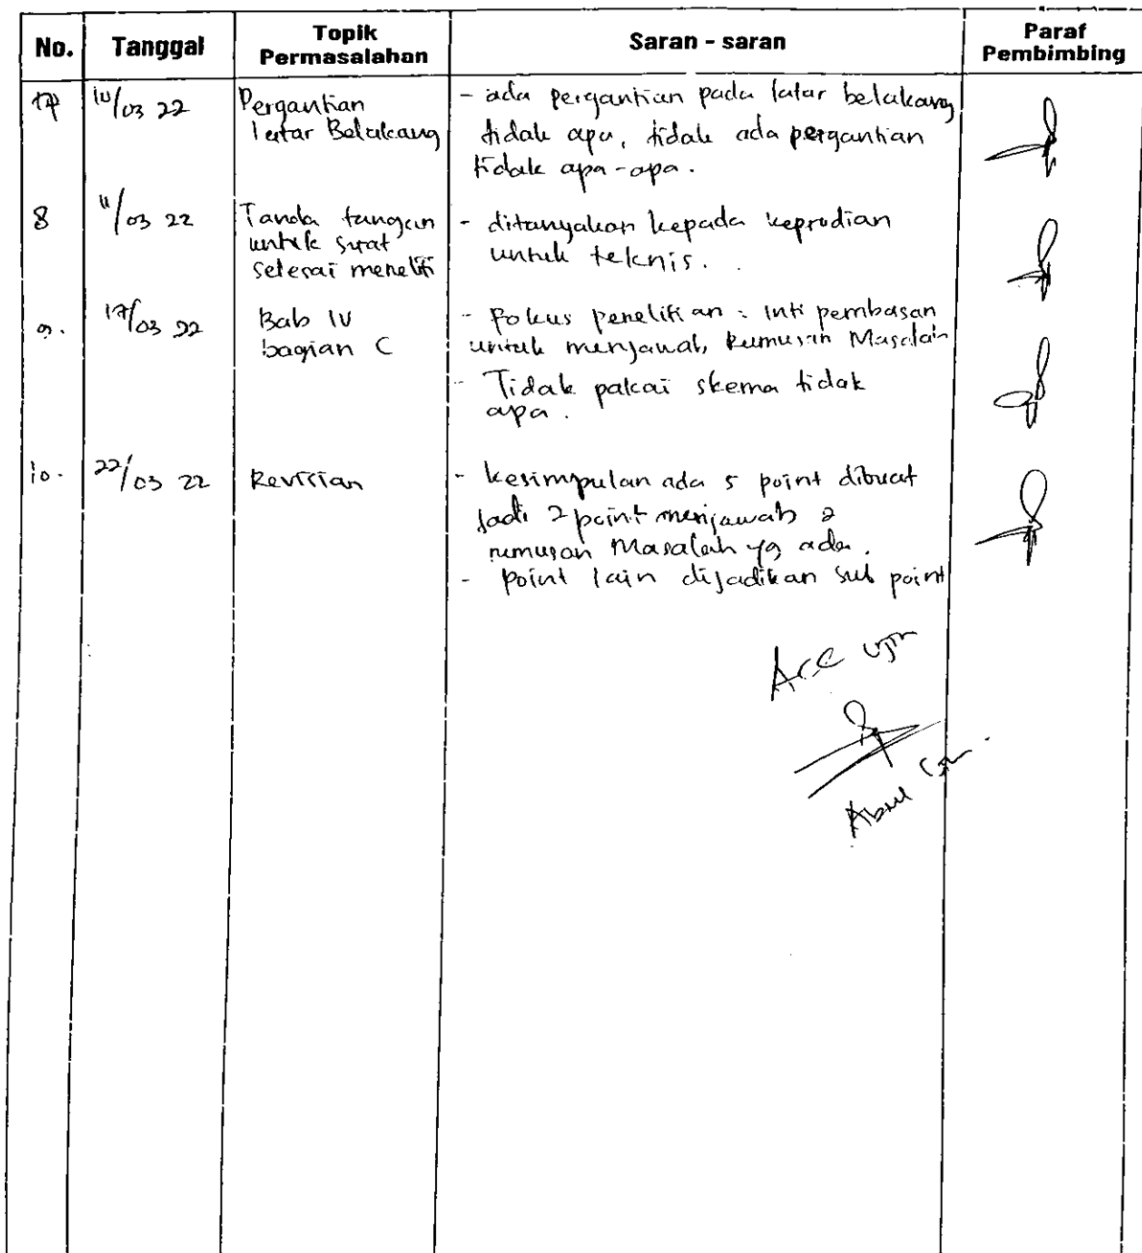 No. Tanggal Topik Permasalahan Saran - saran Paraf Pembimbing
7 10/03 22 Pergantian latar Belakang
- ada pergantian pada latar belakang
tidak apa, tidak ada pergantian
tidak apa-apa.
8 11/03 22 Tanda tangan
untuk surat
selesai meneliti
- ditanyakan kepada keprodian
untuk teknis.
9. 17/03 22 Bab IV
bagian C
- Fokus penelitian : inti pembasan
untuk menjawab Rumusan Masalah
- Tidak pakai skema tidak
apa.
10. 22/03 22 Revisian
- kesimpulan ada 5 point dibuat
jadi 2 point menjawab 2
rumusan Masalah yg ada.
- point lain dijadikan sub point
Acc